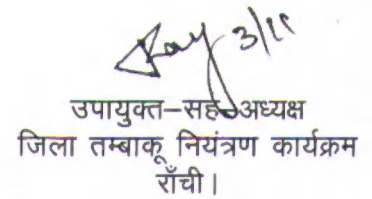 3/11
उपायुक्त–सह–अध्यक्ष
जिला तम्बाकू नियंत्रण कार्यक्रम
राँची।